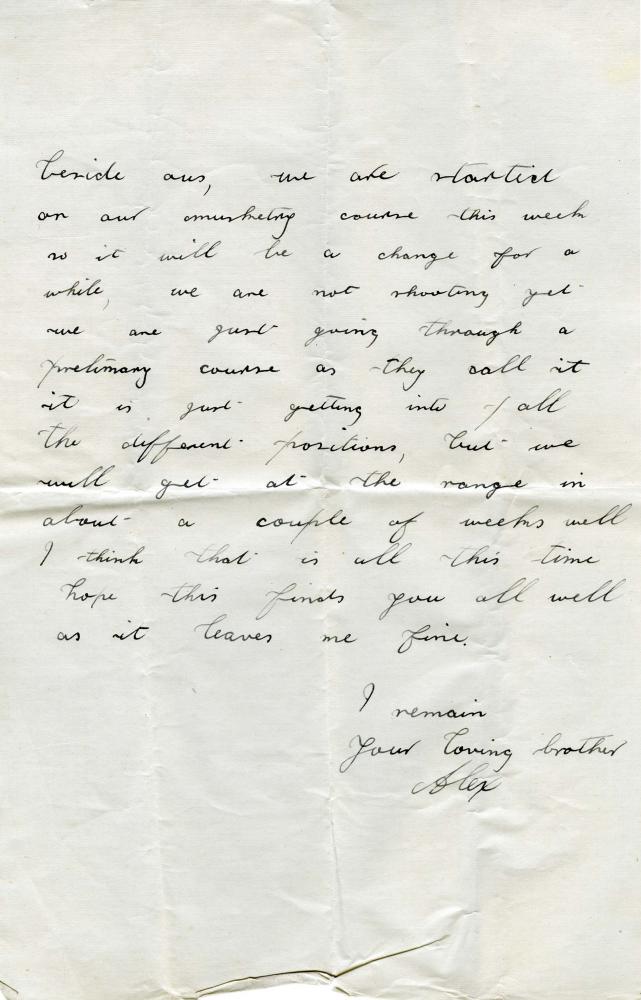 beside ous, we are started
on our musketry course this week
so it will be a change for a
while, we are not shooting yet
we are just going through a
prelimary course as they call it
it is just getting into all
the different positions, but we
will get at the range in
about a couple of weeks well
I think that is all this time
hope this finds you all well
as it leaves me fine.
I remain
Your loving brother
Alex